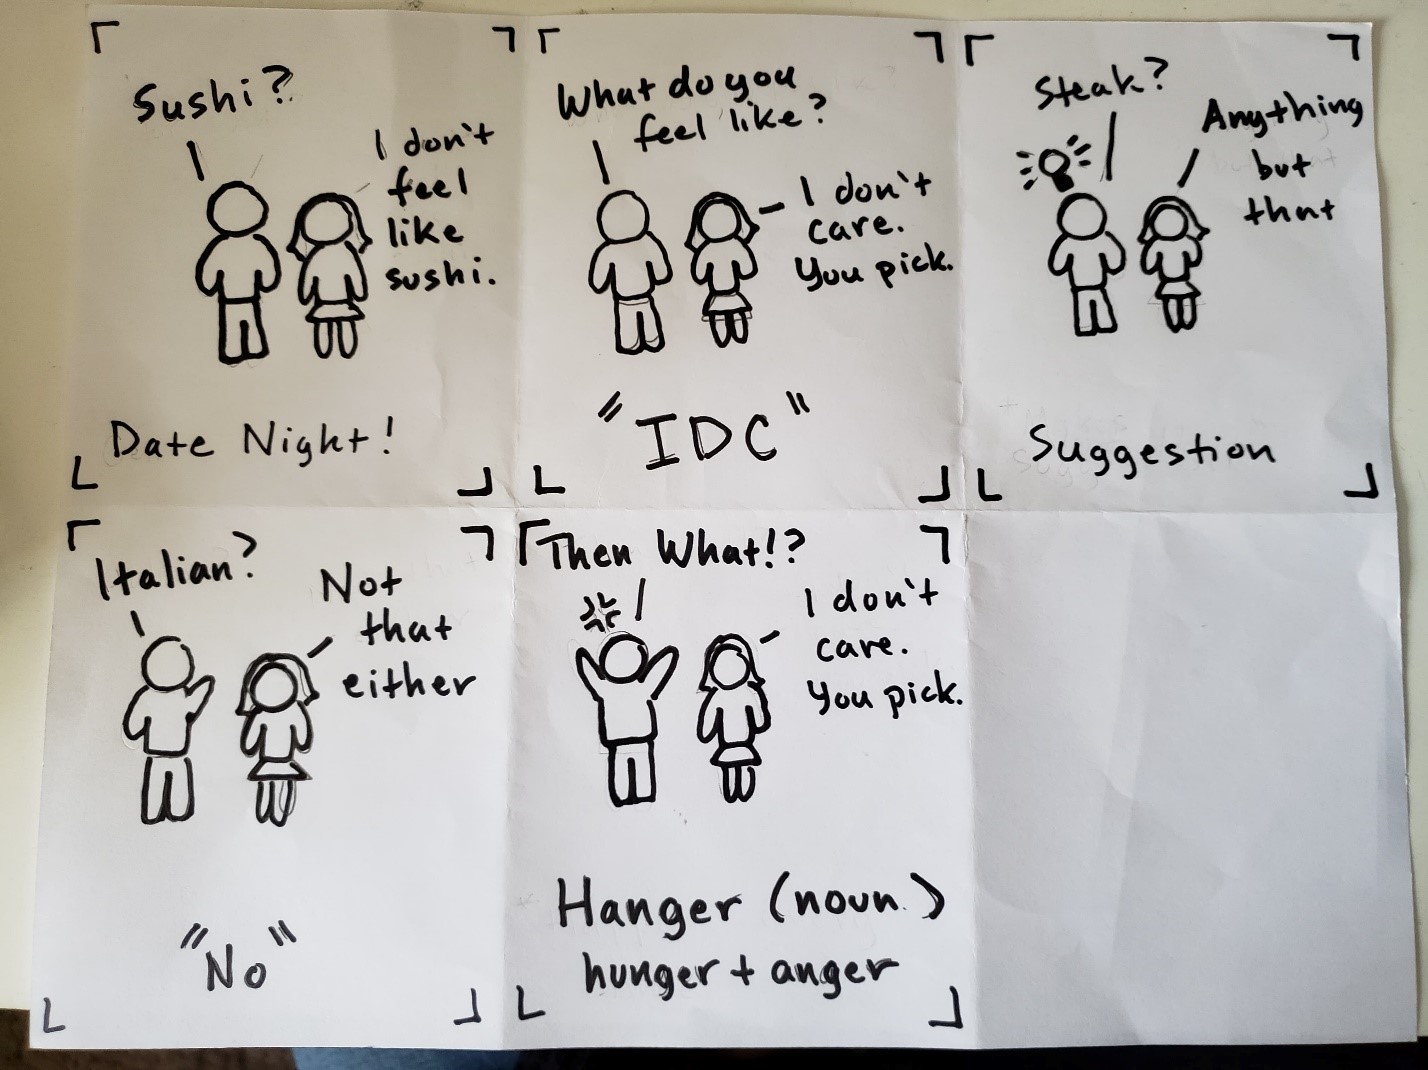 Sushi?
I don't
feel
like
sushi.
Date Night!
What do you
feel like?
I don't
care.
You pick.
"IDC"
Steak?
Anything
but
that
Suggestion
Italian?
Not
that
either
"No"
Then What!?
I don't
care.
You pick.
Hanger (noun.)
hunger + anger